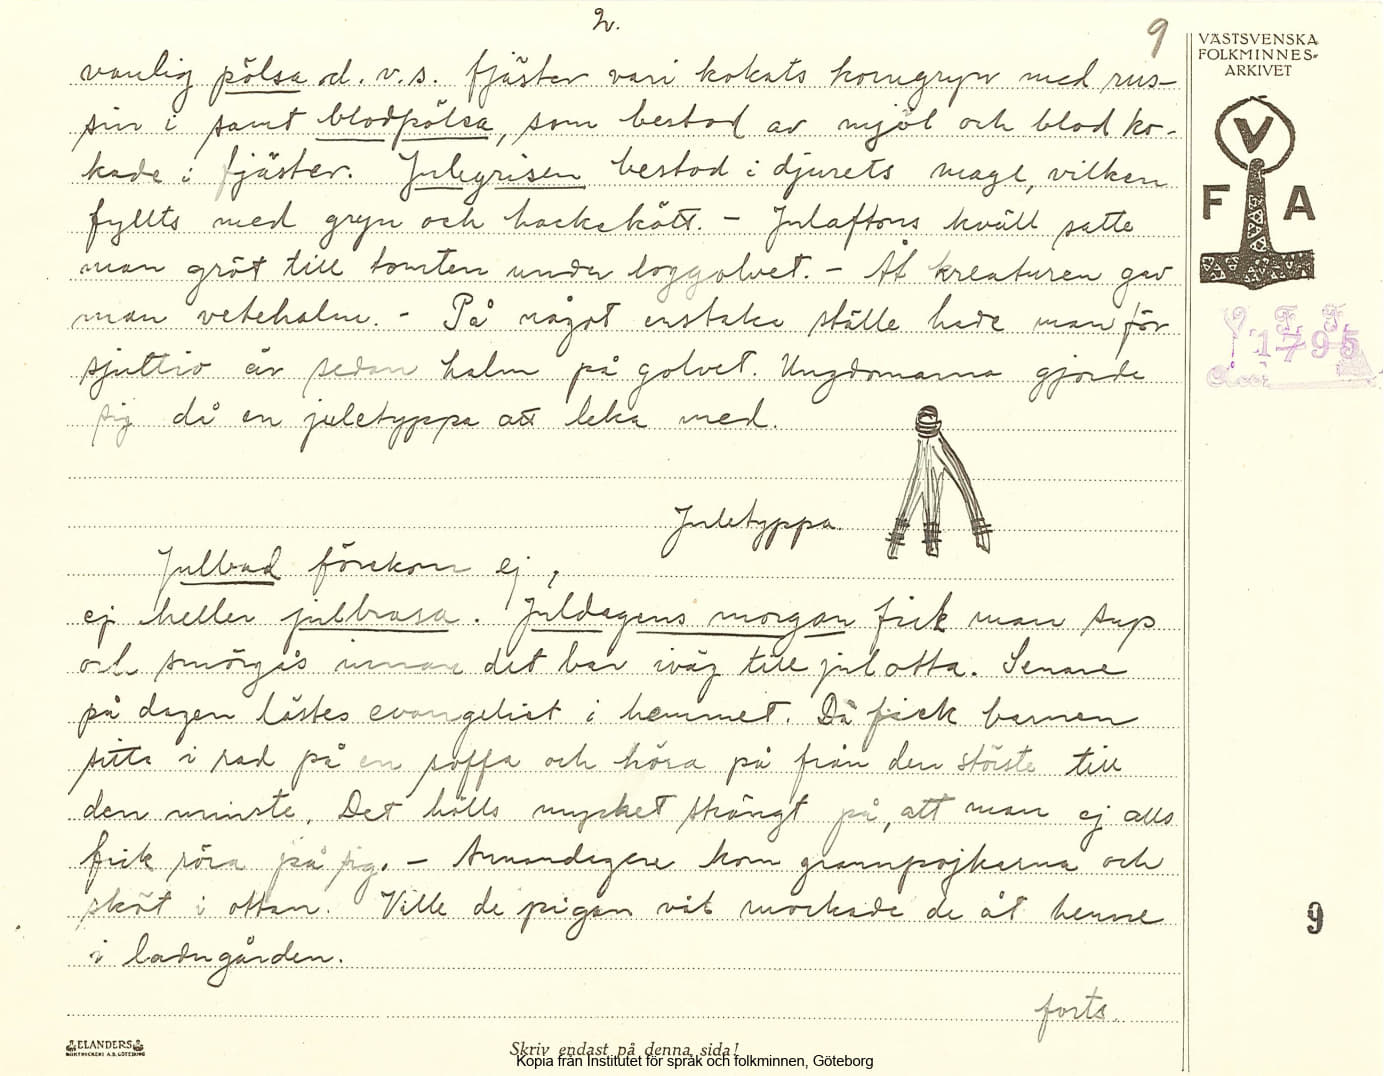 2.
9
VÄSTSVENSKA
FOLKMINNES-
ARKIVET
V
F A
1795
vanlig pölsa d. v. s. fjäster vari kokats korngryn med rus-
sin i samt blodpölsa, som bestod av mjöl och blod ko-
kade i fjäster. Julegrisen bestod i djurets mage, vilken
fyllts med gryn och hackekött. - Julaftons kväll satte
man gröt till tomten under loggolvet. - Åt kreaturen gav
man vetehalm. - På något enstaka ställe hade man för
sjuttio år sedan halm på golvet. Ungdomarna gjorde
sig då en juletyppa att leka med.
Juletyppa.
Julbad förekom ej,
ej heller julbrasa. Juldagens morgon fick man sup
och smörgås innan det bar iväg till julotta. Senare
på dagen lästes evangeliet i hemmet. Då fick barnen
sitta i rad på en soffa och höra på från den störste till
den minste. Det hölls mycket strängt på, att man ej alls
fick röra på sig. - Annandagen kom grannpojkarna och
sköt i ottan. Ville de pigan väl mockade de åt henne
i ladugården.
forts.
9
ELANDERS
BOKTRYCKERI A.B. GÖTEBORG
Skriv endast på denna sida!
Kopia från Institutet för språk och folkminnen, Göteborg